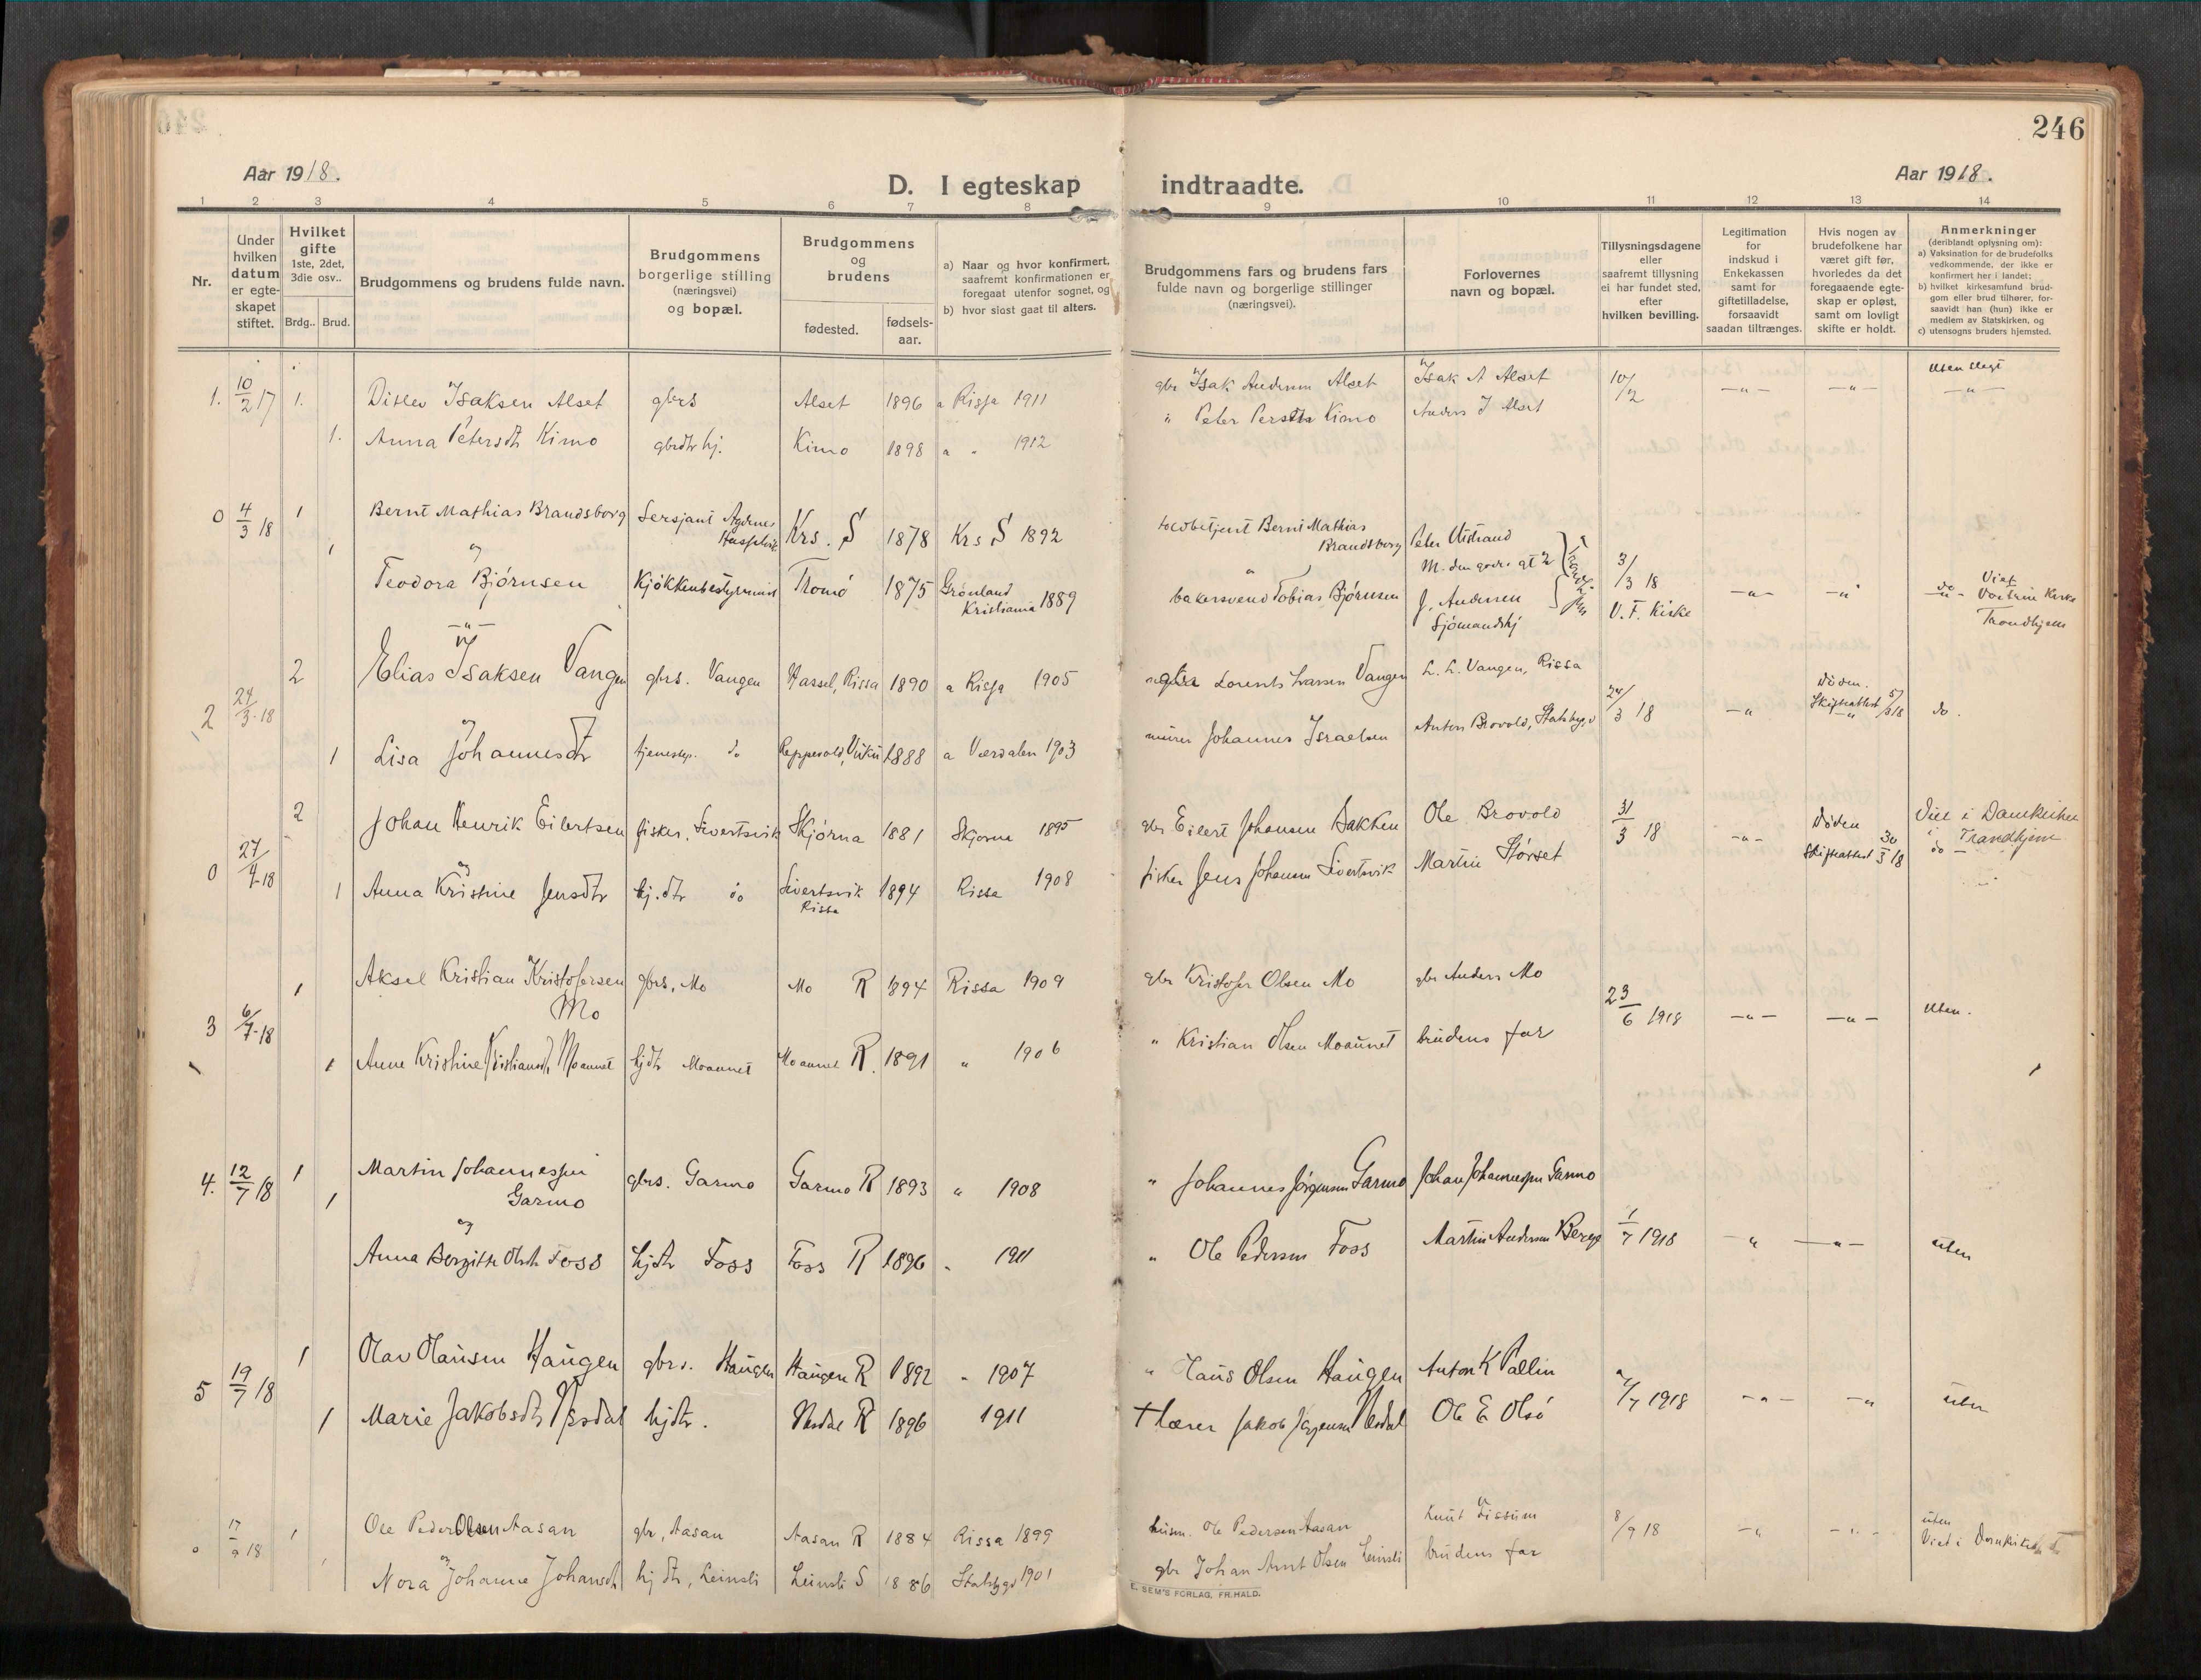 246
Aar 1918.
Aar 1918.
D. I egteskap indtraadte.
1 2 3 4 5 6 7 8 9 10 11 12 13 14
Nr.
Under hvilken datum er egte-skapet stiftet.
Hvilket gifte
1ste, 2det, 3die osv..
Brdg.. Brud.
Brudgommens og brudens fulde navn.
Brudgommens borgerlige stilling (næringsvei) og bopæl.
Brudgommens og brudens
fødested.
fødsels-aar.
a) Naar og hvor konfirmert, saafremt konfirmationen er foregaat utenfor sognet, og
b) hvor sidst gaat til alters.
Brudgommens fars og brudens fars fulde navn og borgerlige stillinger (næringsvei).
Forlovernes navn og bopæl.
Tillysningsdagene eller saafremt tillysning ei har fundet sted, efter hvilken bevilling.
Legitimation for indskud i Enkekassen samt for giftetilladelse, forsaavidt saadan tiltrænges.
Hvis nogen av brudefolkene har været gift før, hvorledes da det foregaaende egte-skap er opløst, samt om lovligt skifte er holdt.
Anmerkninger
(deriblandt oplysning om):
a) Vaksination for de brudefolks vedkommende, der ikke er konfirmert her i landet;
b) hvilket kirkesamfund brud-gom eller brud tilhører, for-saavidt han (hun) ikke er medlem av Statskirken, og
c) utensogns bruders hjemsted.
1. 10/2 17 1. Ditlev Isaksen Alset gbrs Alset 1896 a Rissa 1911 gbr Isak Andersen Alset Isak A Alset 10/2 -"- -"- uten slegt -"-
1. Anna Petersdtr Kimo gbrdtr hj. Kimo 1898 a " 1912 " Peter Kimo Anders J Alset
0 4/3 18 1 Bernt Mathias Brandsborg Sersjant Agdenes Krs. S 1878 Krs S 1892 Bernt Mathias Brandsborg Peter
1 og Teodora Bjørnsen Tromø 1875 Grønland Kristiania 1889 bakersvend Tobias Bjørnsen J. Andersen Sjömandshj 3/3 18 V. F. Kirke -"- -"- do Viet Vor Frue Kirke Trondhjem
2 24/3-18 2 Elias Isaksen Vangen gbrs. Vangen Hassel, Rissa 1890 a Rissa 1905 Lorents Larsen Vangen L. L. Vangen, Rissa 24/3 18 -" Døden. Skifteattest 5/3 18 do.
og
1 Lisa Johannesdtr tjenestep. do 1888 a Værdalen 1903 murer Johannes Israelsen Anton Brovold, Stadsbygd
0 27/4-18 2 Johan Henrik Eilertsen fisker, Sivertsvik Skjørna 1881 Skjørna 1895 gbr Eilert Johansen Bakken Ole Brovold 31/3 18 -"- Døden Skifteattest 30/3 18 Viet i Domkirken i Trondhjem
og
1 Anna Kristine Jensdtr hj. dtr do Sivertsvik Rissa 1894 Rissa 1908 fisker Jens Johansen Sivertsvik Martin Størset do -
3 6/7-18 1 Aksel Kristian Kristofersen Mo gbrs, Mo Mo R 1894 Rissa 1909 gbr Kristofer Olsen Mo gbr Anders Mo 23/6 1918 -"- -"- uten.
1 Anne Kristine Kristiansd. Moaunet hjdtr Moaunet Moaunet R. 1891 " 1906 " Kristian Olsen Moaunet brudens far
4. 12/7 18 1 Martin Johannessen Garmo gbrs. Garmo Garmo R 1893 " 1908 " Johannes Jørgensen Garmo Johan Johannessen Garmo
1 og
Anna Bergitte Olsdtr Foss hjdtr Foss Foss R 1896 " 1911 " Ole Pedersen Foss Martin Andersen Berge 1/7 1918 -"- -"- uten
5 19/7 18 1 Olav Hansen Haugen gbrs. Haugen Haugen R 1892 " 1907 " Hans Olsen Haugen Anton K Pallin 7/7 1918 -"- -" uten
1 Marie Jakobsdtr Nesdal hjdtr. Nesdal R 1896 1911 † lærer Jakob Nesdal Ole E Olsø
0 17/9 18 1 Ole Peder Olsen Aasan gbr, Aasan Aasan R 1884 Rissa 1899 husm. Ole Pedersen Aasan Knut Fissum 8/9 18 -" -"- uten
og
Nora Johanne Johansdtr hj dtr, Leinsli Leinsli S 1886 Stadsbygd 1901 gbr Johan Arnt Olsen Leinsli brudens far Viet i Domkirken
E. SEM'S FORLAG, FR.HALD.